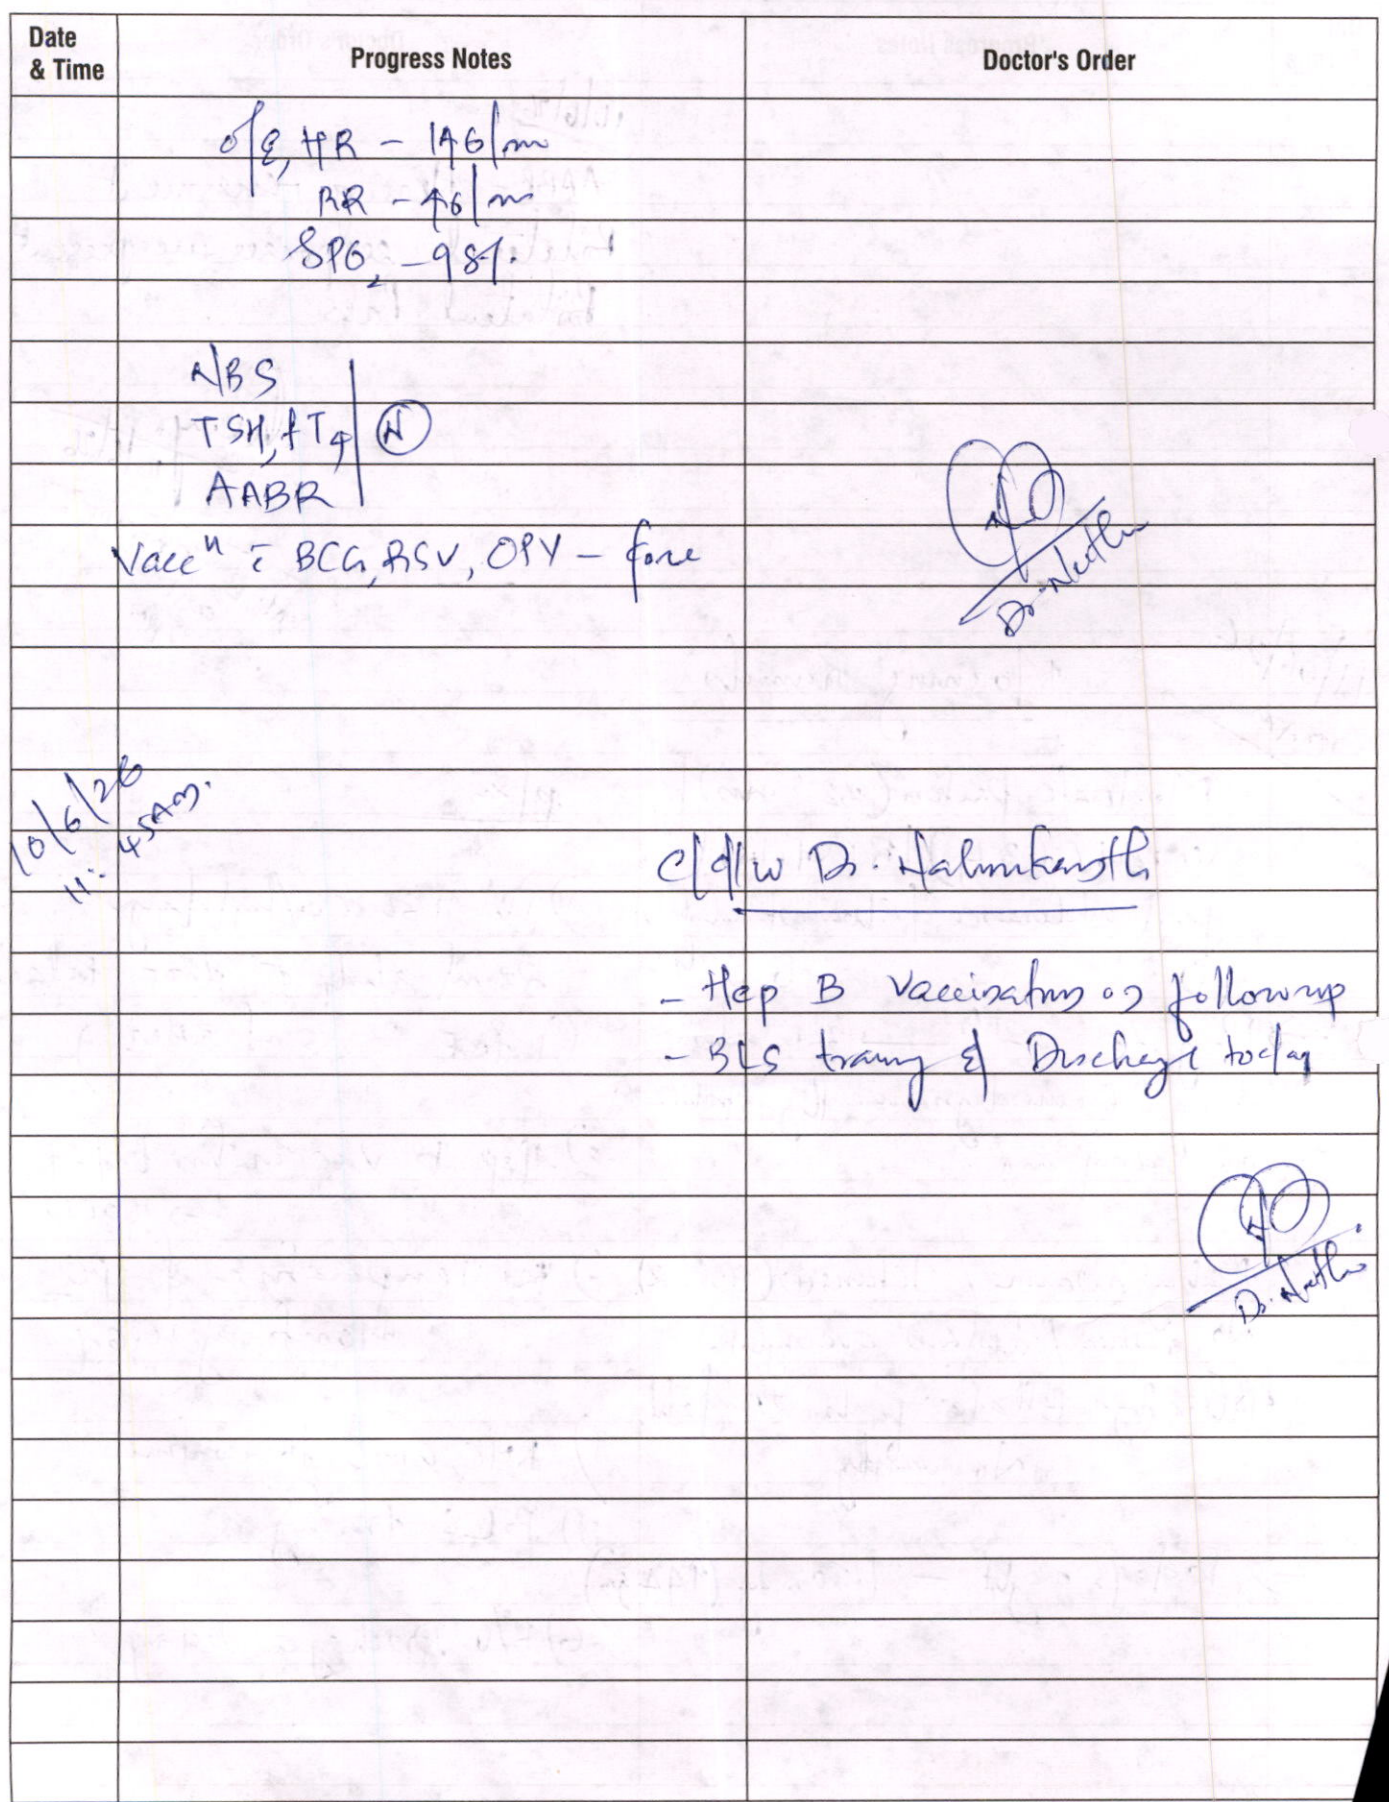 Date & Time
Progress Notes
Doctor's Order
o/E, HR - 146/m
RR - 46/m
SPO2 - 98%.
NBS
TSH, fT4 (N)
AABR
Vaccⁿ c̄ BCG, RSV, OPV -
Dr.
10/6/26
11:45AM.
c/d/w Dr.
- Hep B Vaccination on followup
- BLS training & Discharge today
Dr.